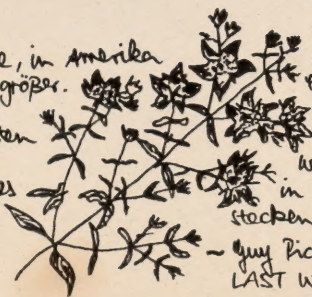 e, in Amerika
größer.
ten
es
w
in
stecken
~ Guy Pic
LAST W